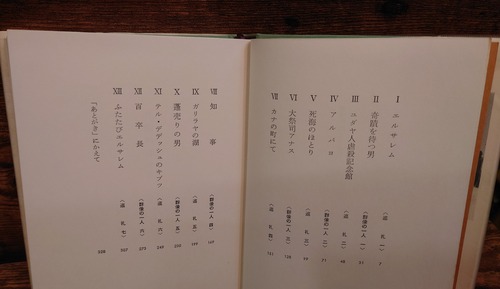 I エルサレム (巡礼 一) 7
II 奇蹟を待つ男 (群像の一人 一) 21
III ユダヤ人虐殺記念館 (巡礼 二) 48
IV アルパヨ (群像の一人 二) 71
V 死海のほとり (巡礼 三)
VI 大祭司アナス (群像の一人 三) 128
VII カナの町にて (巡礼 四) 151
VIII 知事 (群像の一人 四)
IX ガリラヤの湖 (巡礼 五)
X 蓬売りの男 (群像の一人 五)
XI テル・デデッシュのサブラ (巡礼 六)
XII 百卒長 (群像の一人 六)
XIII ふたたびエルサレム (巡礼 七)
「あとがき」にかえて